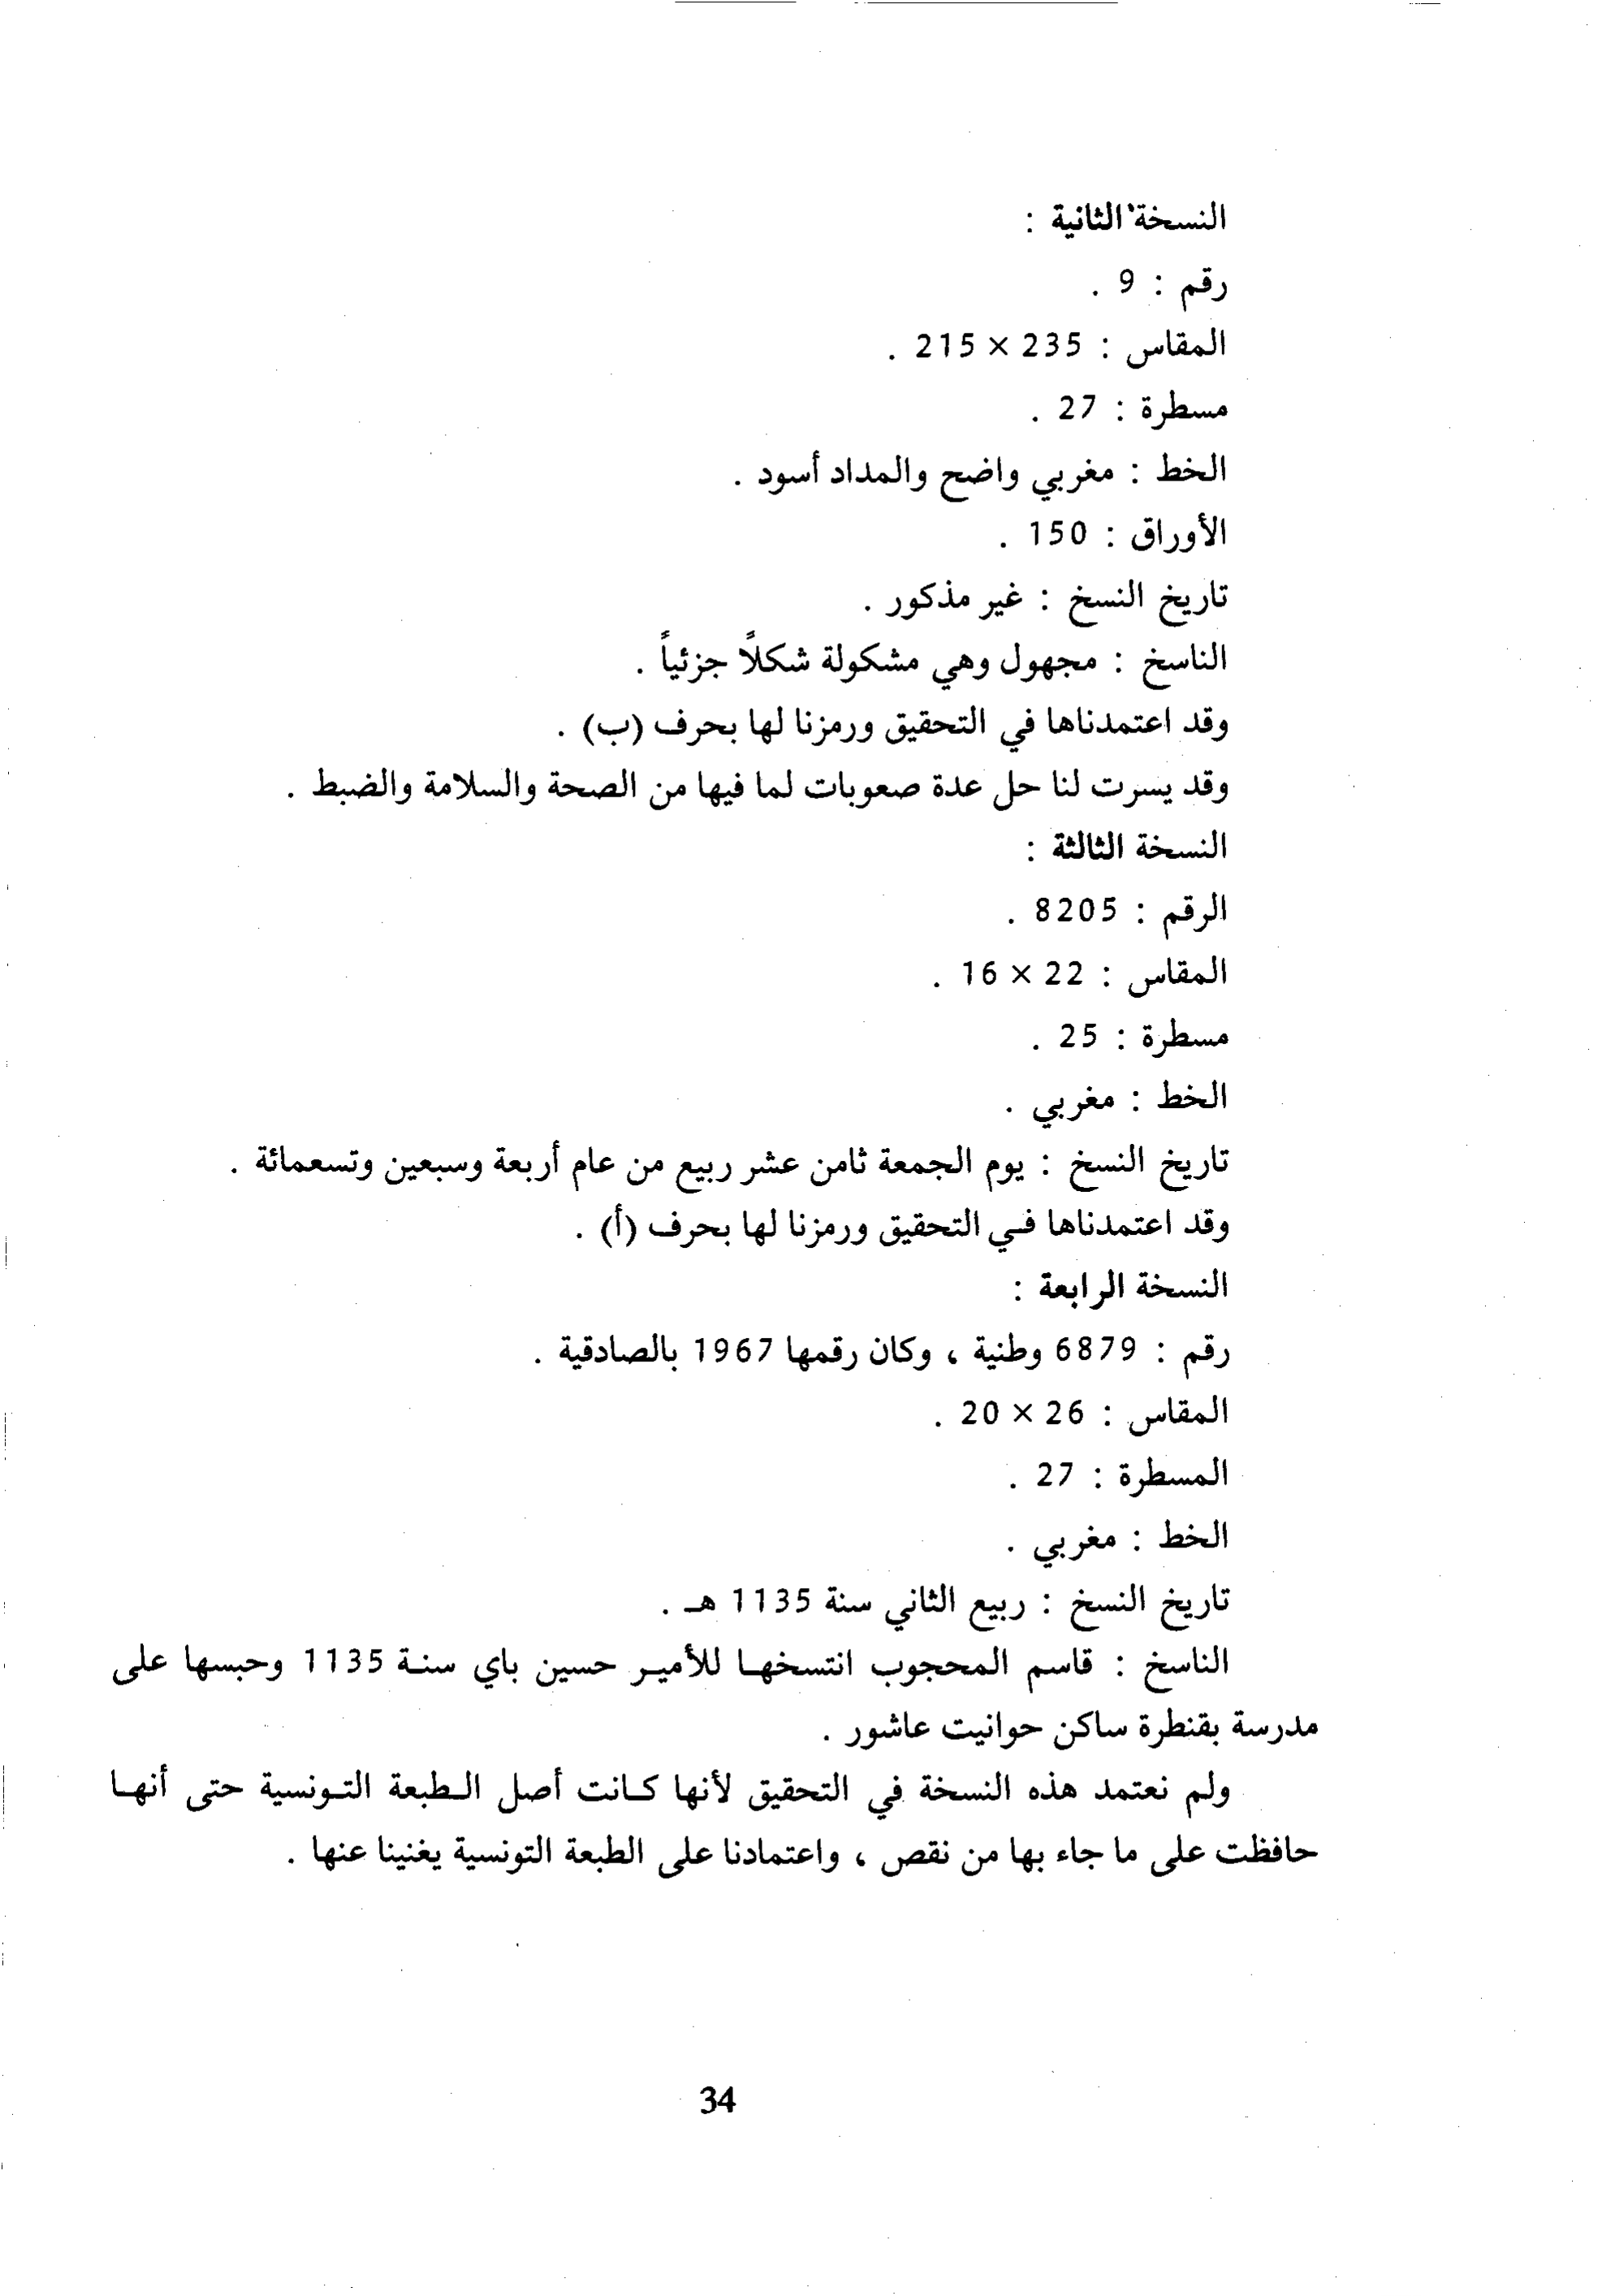 النسخة الثانية :
رقم : 9 .
المقاس : 235 × 215 .
مسطرة : 27 .
الخط : مغربي واضح والمداد أسود .
الأوراق : 150 .
تاريخ النسخ : غير مذكور .
الناسخ : مجهول وهي مشكولة شكلاً جزئياً .
وقد اعتمدناها في التحقيق ورمزنا لها بحرف (ب) .
وقد يسرت لنا حل عدة صعوبات لما فيها من الصحة والسلامة والضبط .
النسخة الثالثة :
الرقم : 8205 .
المقاس : 22 × 16 .
مسطرة : 25 .
الخط : مغربي .
تاريخ النسخ : يوم الجمعة ثامن عشر ربيع من عام أربعة وسبعين وتسعمائة .
وقد اعتمدناها في التحقيق ورمزنا لها بحرف (أ) .
النسخة الرابعة :
رقم : 6879 وطنية ، وكان رقمها 1967 بالصادقية .
المقاس : 26 × 20 .
المسطرة : 27 .
الخط : مغربي .
تاريخ النسخ : ربيع الثاني سنة 1135 هـ .
الناسخ : قاسم المحجوب انتسخها للأمير حسين باي سنة 1135 وحبسها على
مدرسة بقنطرة ساكن حوانيت عاشور .
ولم نعتمد هذه النسخة في التحقيق لأنها كانت أصل الطبعة التونسية حتى أنها
حافظت على ما جاء بها من نقص ، واعتمادنا على الطبعة التونسية يغنينا عنها .
34